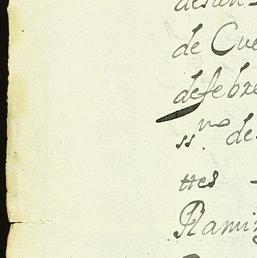 de Cue
de febre
ss.no de
tres
Rami